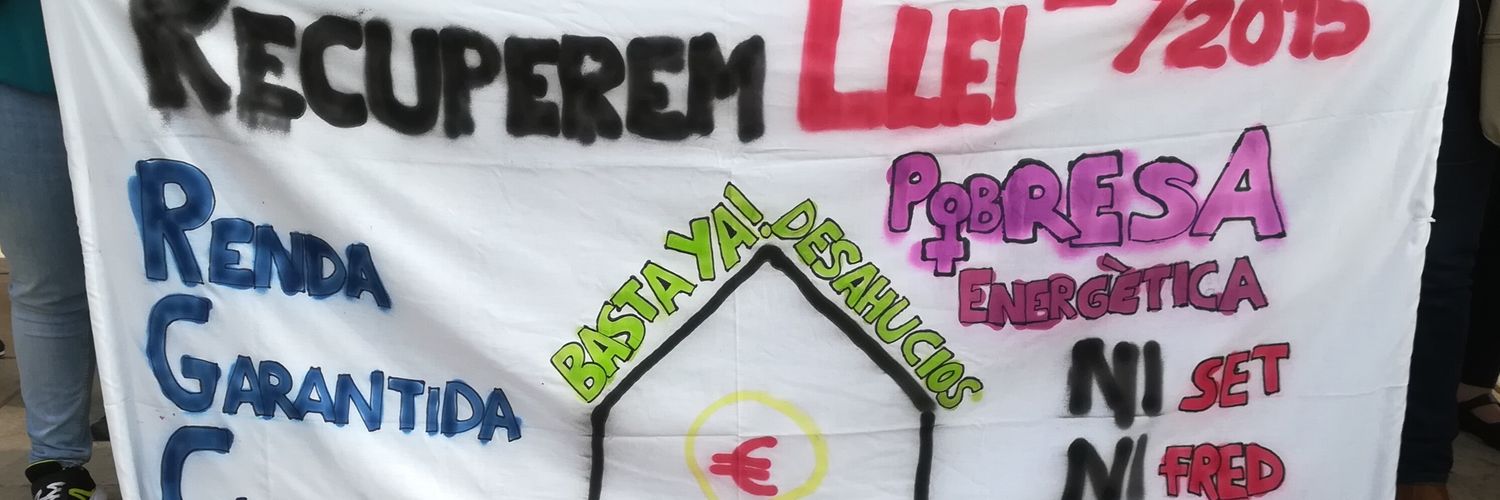 RECUPEREM LLEI /2015
RENDA
GARANTIDA
BASTA YA! DESAHUCIOS
€
POBRESA
ENERGÈTICA
NI SET
NI FRED